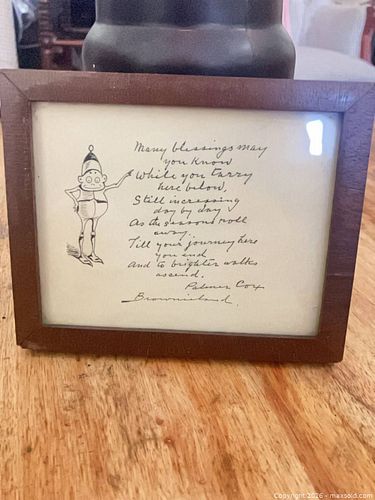 Many blessings may
you know
While you tarry
here below,
Still increasing
day by day
As the seasons roll
away.
Till your journey here
you end
And to brighter walks
ascend.
Palmer Cox
Brownieland.
Copyright 2026 - maxsold.com